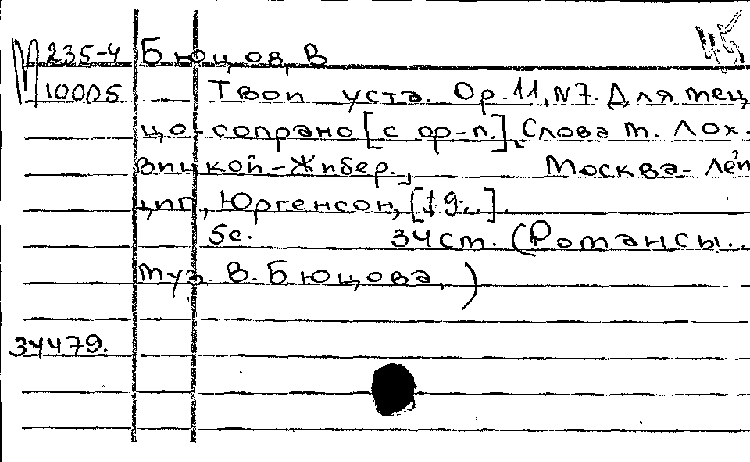 М 235-4 Бюцов, В 45
10005 Твои уста. Op.11, N7. Для мец
цо-сопрано [с ф-п.], Слова М. Лох-
вицкой-Жибер., Москва-Лейп
циг, Юргенсон, [19..].
5с. 34см. (Романсы..
муз. В. Бюцова.)
34479.